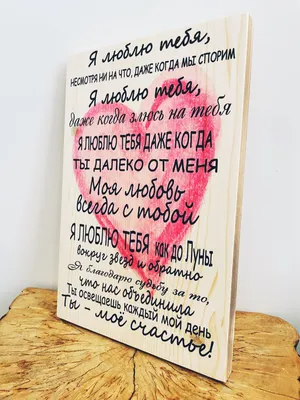 Я люблю тебя,
НЕСМОТРЯ НИ НА ЧТО, ДАЖЕ КОГДА МЫ СПОРИМ
Я люблю тебя,
даже когда злюсь на тебя
Я ЛЮБЛЮ ТЕБЯ ДАЖЕ КОГДА
ТЫ ДАЛЕКО ОТ МЕНЯ
Моя любовь
всегда с тобой
Я ЛЮБЛЮ ТЕБЯ как до Луны
вокруг звезд и обратно
Я благодарю судьбу за то,
что нас объединила
Ты освещаешь каждый мой день
Ты - моё счастье!